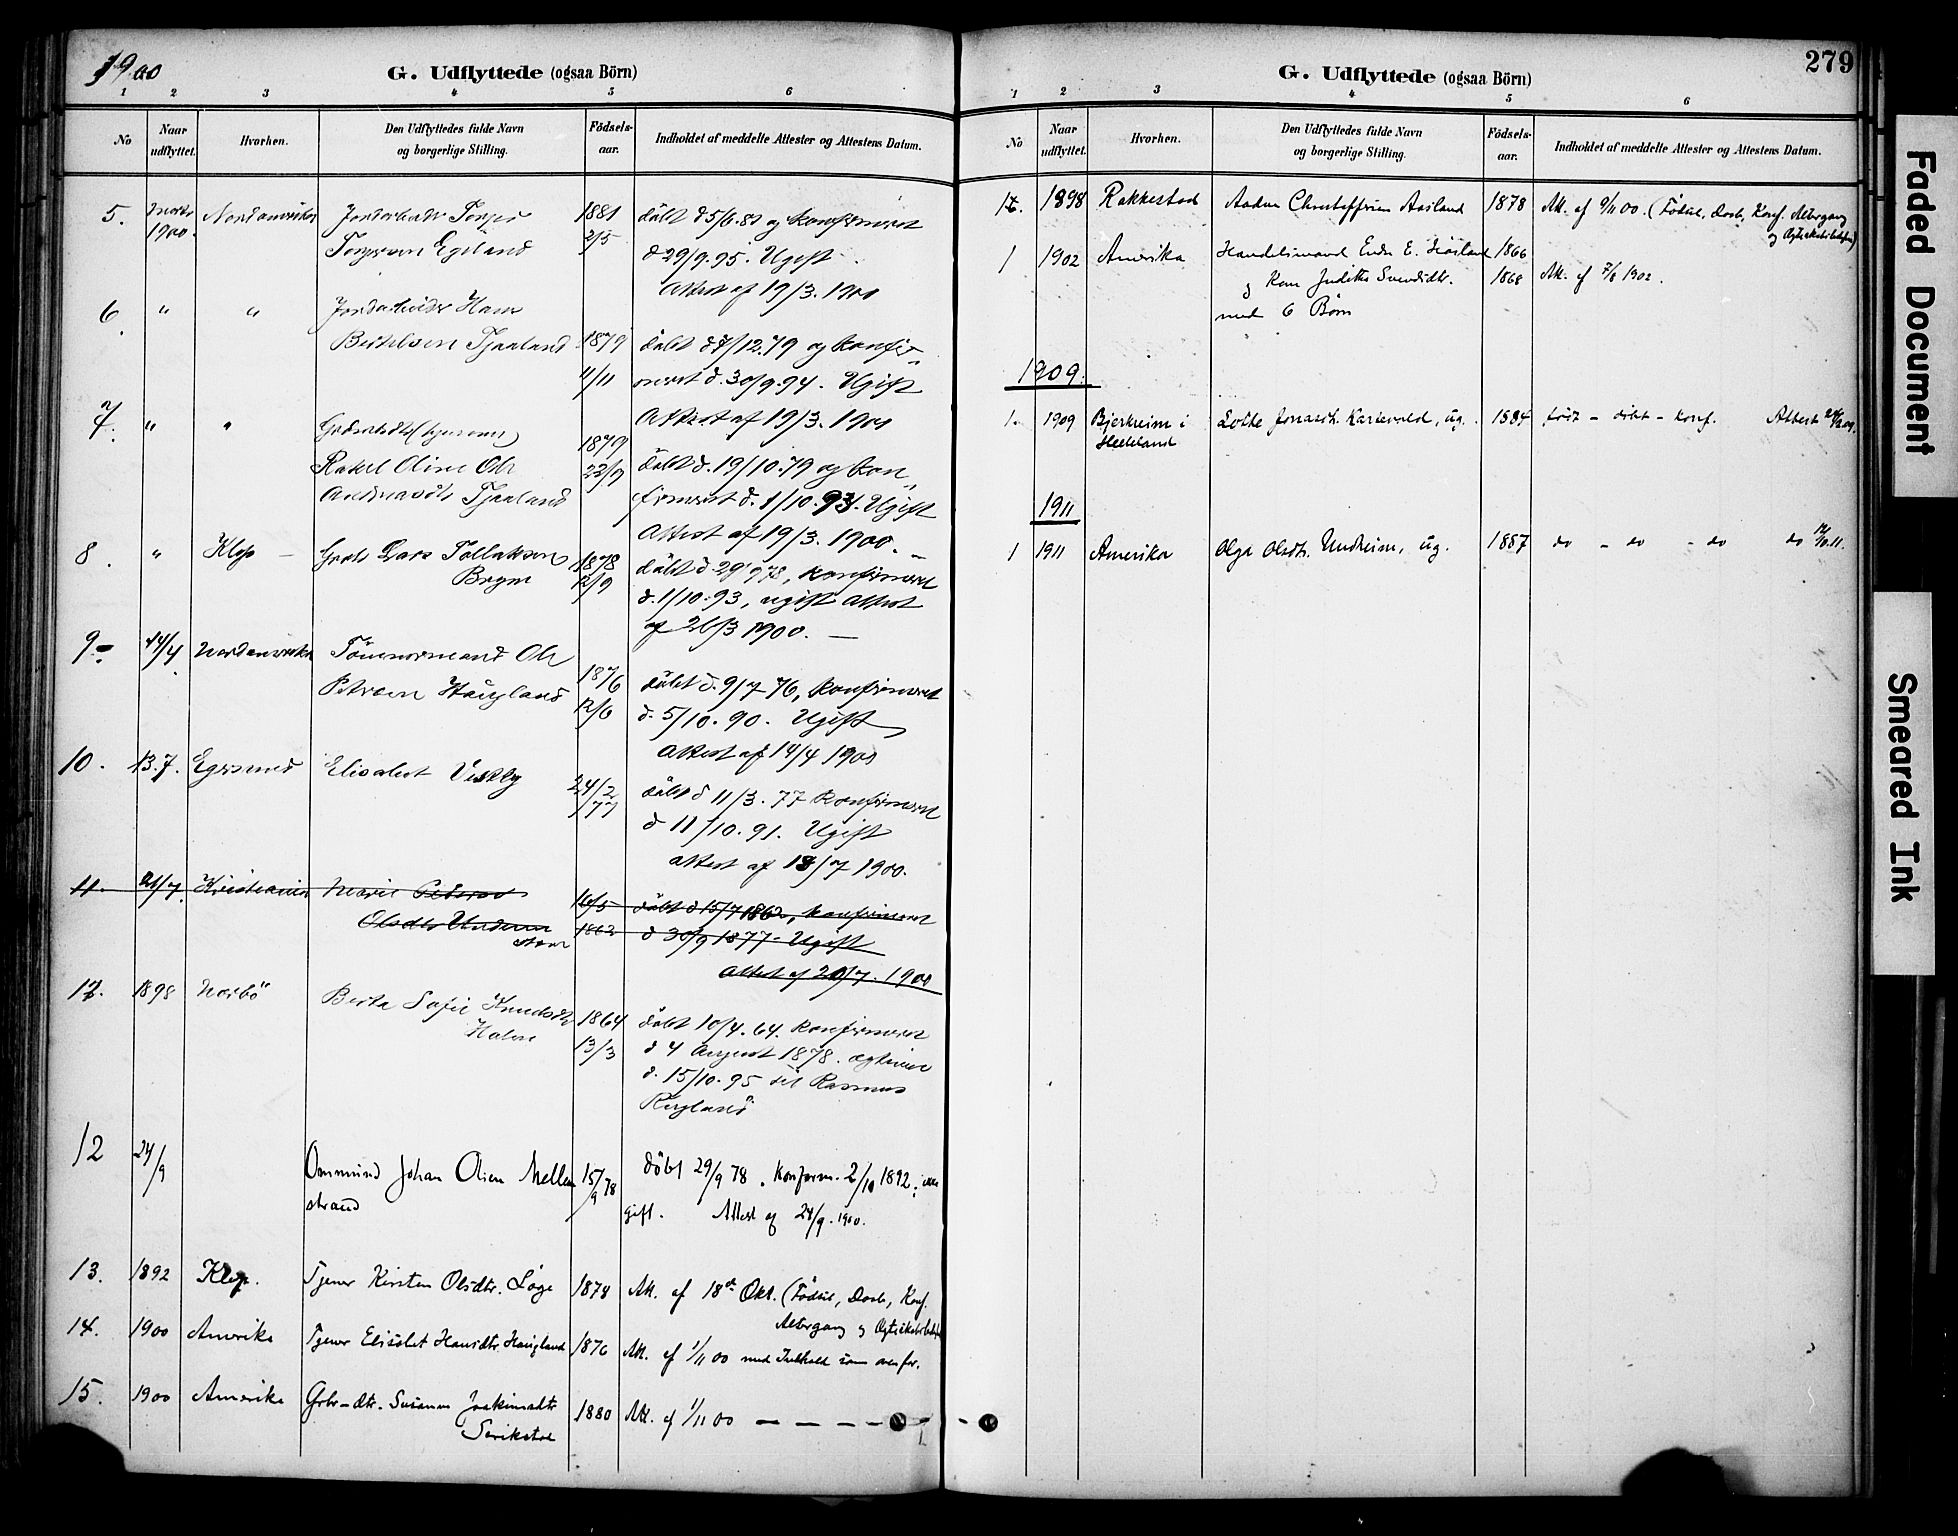 1900
G. Udflyttede (ogsaa Börn)
1 2 3 4 5 6
No
Naar udflyttet.
Hvorhen.
Den Udflyttedes fulde Navn og borgerlige Stilling.
Födsels-aar.
Indholdet af meddelte Attester og Attestens Datum.
5. Marts 1900. Nordamerika
Torgersen Egeland
1881 2/5
döbt d 5/6.81 og konfirmeret
d 29/9.95. Ugift
Attest af 19/3.1900
6. " " Hans
Bertelsen Tjaaland 1879 11/11
döbt d 7/12.79 og konfir-
meret d. 30/9.94. Ugift
Attest af 19/3.1900
7. " "
Rakel Oline Ole
Andreasdtr Tjaaland
1879 23/9
döbt d. 19/10.79 og kon-
firmeret d. 1/10.93. Ugift
Attest af 19/3.1900.
8. " Klep
Lars Tollaksen
Bryne
1878 12/9
döbt d. 29/9 78, konfirmeret
d. 1/10.93, ugift Attest
af 26/3 1900.
9. 14/4 Nordamerika
Tömmermand Ole
Petersen Haugland
1876 12/6
döbt d. 9/7 76, konfirmeret
d. 5/10.90. Ugift
Attest af 14/4 1900
10. 13.7. Egersund
Elisabet Vestly
24/2 77
döbt d 11/3.77 konfirmeret
d 11/10.91. Ugift
Attest af 13/7 1900.
11. 21/7. Kristiania
Marie
Olsdtr
16/5 1862
döbt d 15/7 1862, konfirmeret
d 30/9 1877. Ugift
Attest af 20/7.1900
12. 1898 Nærbö
Berta Sofie Knudsdtr
1864 13/3
döbt 10/4.64. konfirmeret
d 4 August 1878.
d. 15/10.95 til Rasmus
12 24/9
Ommund Johan Olsen Mellem
strand
15/9 78
döbt 29/9 78. Konform. 2/10 1892; ikke
gift. Attest af 24/9.1900.
13. 1892 Klep.
Tjener Kirsten Olsdtr. Löge 1878
Att. af 18de Okt. (Födsel, Daab, Konf.
Altergang og
14. 1900 Amerika
Tjener Elisabet Hansdtr. Haugland 1876
Att. af 1/11 00 med Indhold som ovenfor.
15. 1900 Amerika
Gbr-dtr. Susanne Joakimsdtr
1880
Att. af 1/11 00 — — — —
279
G. Udflyttede (ogsaa Börn)
1 2 3 4 5 6
No
Naar udflyttet.
Hvorhen.
Den Udflyttedes fulde Navn og borgerlige Stilling.
Födsels-aar.
Indholdet af meddelte Attester og Attestens Datum.
1898 Rakkestad
Aasland 1878
Att. af 9/11 00. (Födsel, Daab, Konf. Altergang
og
1 1902 Amerika
Handelsmand Endre E. 1866
og Kone Judithe Svendsdtr. 1868
Att. af 7/8 1902.
med 6 Börn
1909.
1. 1909 Bjerkreim i
Helleland
Lotte Jonasdtr. ug. 1884
födt – döbt – konf. Attest
1911
1 1911 Amerika
Olga Olsdtr. Undheim, ug. 1887
do – do – do do
Faded Document
Smeared Ink